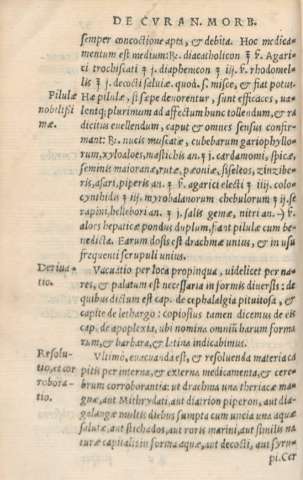 DE CVRAN. MORB.
semper concoctione apta, & debita. Hoc medica-
mentum est medium: ℞. diacatholicon ℥ ß. Agari-
ci trochiscati ʒ j. diaphœnicon ʒ iij. ß. rhodomel-
lis ℥ j. decocti saluiæ. quod. s. misce, & fiat potus.
Pilulæ
nobilissi
mæ.
Hæ pilulæ, si sæpe deuorentur, sunt efficaces, ua-
lentq; plurimum ad affectum hunc tollendum, & ra
dicitus euellendum, caput & omnes sensus confir-
mant: ℞. nucis muscatæ, cubebarum gariophyllo-
rum, xyloaloes, mastichis an. ʒ j. cardamomi, spicæ,
seminis maioranæ, rutæ, pæoniæ, siseleos, zinzibe-
ris, asari, piperis an. ʒ ß. agarici electi ʒ iiij. colo-
cynthidis ʒ iij. myrobalanorum chebulorum ʒ ij. se
rapini, hellebori an. ʒ j. salis gemæ, nitri an.
aloes hepaticæ pondus duplum, fiāt pilulæ cum be-
nedicta. Earum dosis est drachmæ unius, & in usu
frequenti scrupuli unius.
Deriua-
tio.
Vacuatio per loca propinqua, uidelicet per na-
res, & palatum est necessaria in formis diuersis: de
quibus dictum est cap. de cephalalgia pituitosa, &
capite de lethargo: copiosius tamen dicemus de eis
cap. de apoplexia, ubi nomina omniū harum forma
rum, & barbara, & latina indicabimus.
Resolu-
tio, et cor
robora-
tio.
Vltimò, euacuanda est, & resoluenda materia ca
pitis per interna, & externa medicamenta, & cere-
brum corroborantia: ut drachma una theriacæ ma-
gnæ, aut Mithrydati, aut diatrion piperon, aut dia-
galangæ multis diebus sumpta cum uncia una aquæ
saluiæ, aut stichados, aut roris marini, aut similis na
turæ capitalis in forma aquæ, aut decocti, aut syru-
pi. Cer